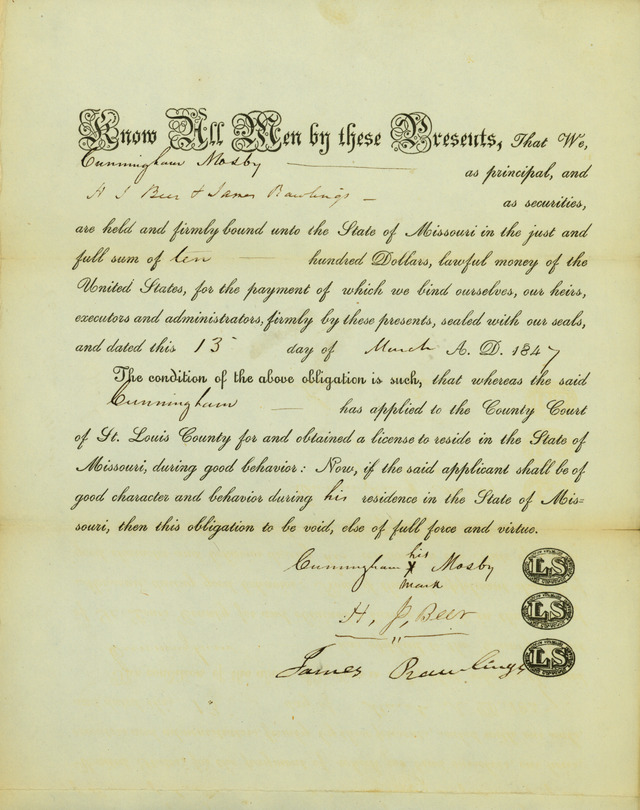 Know All Men by these Presents, That We,
Cunningham Mosby as principal, and
H J Beer & James Rawlings as securities,
are held and firmly bound unto the State of Missouri in the just and
full sum of ten hundred Dollars, lawful money of the
United States, for the payment of which we bind ourselves, our heirs,
executors and administrators, firmly by these presents, sealed with our seals,
and dated this 15 day of March A. D. 1847
The condition of the above obligation is such, that whereas the said
Cunningham has applied to the County Court
of St. Louis County for and obtained a license to reside in the State of
Missouri, during good behavior: Now, if the said applicant shall be of
good character and behavior during his residence in the State of Mis=
souri, then this obligation to be void, else of full force and virtue.
his
Cunningham X Mosby
mark
LS
H, J, Beer
LS
James Rawlings
LS